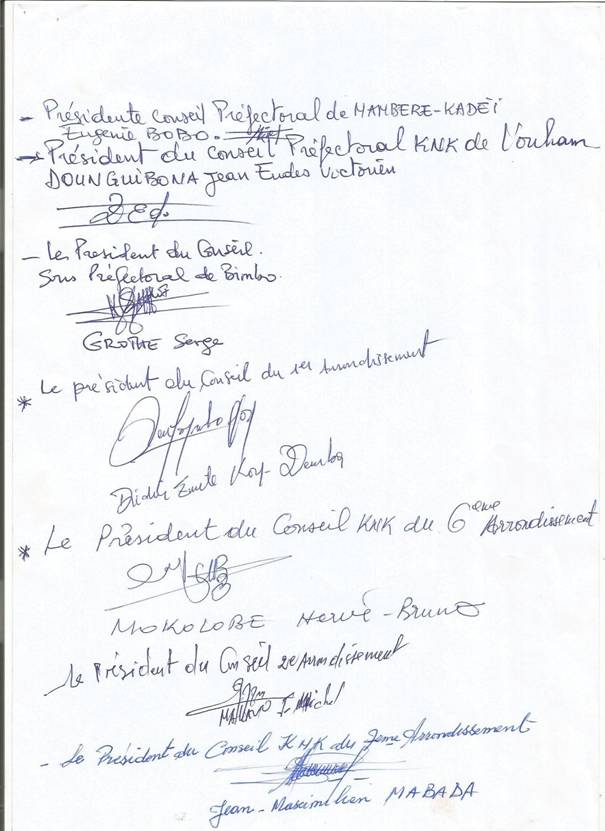 - Présidente Conseil Préfectoral de MAMBERE-KADEÏ
Eugenie BOBO.
- Président du Conseil Préfectoral KNK de l'ouham
DOUNGUIBONA Jean Eudes Victorien
- Le President du Conseil.
Sous Préfectoral de Bimbo.
GROTHE Serge
* Le président du Conseil du 1er Arrondissement
* Le Président du Conseil KNK du 6eme Arrondissement
MOKOLOBE Hervé-Bruno
- Le Président du Conseil 2e Arrondissement
- Le Président du Conseil KNK du 7eme Arrondissement
Jean-Maximilien MABADA